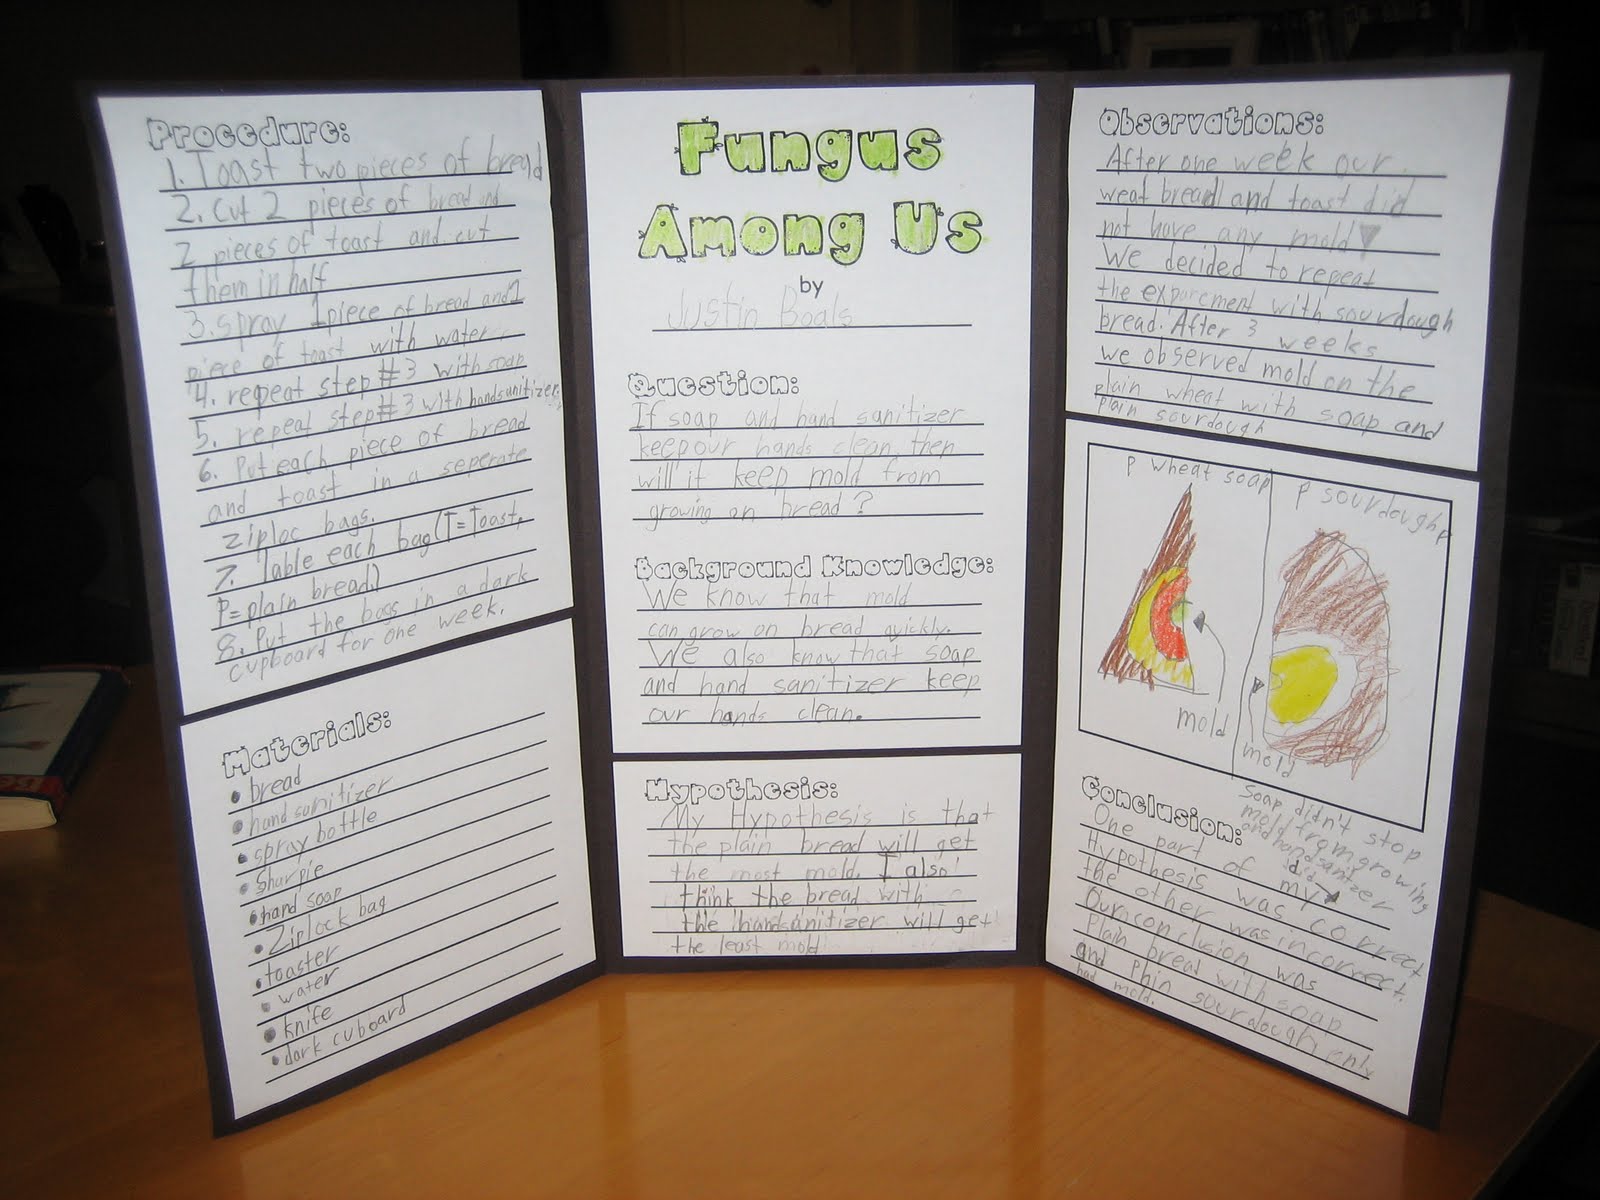 Procedure:
1. Toast two pieces of bread
2. Cut 2 pieces of bread and
2 pieces of toast and cut
them in half
3. spray 1 piece of bread and 1
piece of toast with water
4. repeat step #3 with soap
5. repeat step #3 with handsanitizer.
6. Put each piece of bread
and toast in a seperate
ziploc bags.
7. lable each bag (T=Toast,
P=plain bread)
8. Put the bags in a dark
cupboard for one week.
Materials:
• bread
• handsanitizer
• spray bottle
• sharpie
• hand soap
• Ziplock bag
• toaster
• water
• knife
• dark cuboard
Fungus
Among Us
by
Justin Boals
Question:
If soap and hand sanitizer
keep our hands clean, then
will it keep mold from
growing on bread?
Background Knowledge:
We know that mold
can grow on bread quickly.
We also know that soap
and hand sanitizer keep
our hands clean.
Hypothesis:
My Hypothesis is that
the plain bread will get
the most mold. I also
think the bread with
the handsanitizer will get
the least mold
Observations:
After one week our
weat bread and toast did
not have any mold
We decided to repeat
the exparcment with sourdough
bread. After 3 weeks
we observed mold on the
plain wheat with soap and
plain sourdough
P wheat soap
P sourdough
mold
mold
Soap didn't stop
mold from growing
and handsanitizer
did
Conclusion:
One part of my
Hypothesis was correct
the other was incorrect.
Our conclusion was
plain bread with soap
and plain sourdough only
had mold.